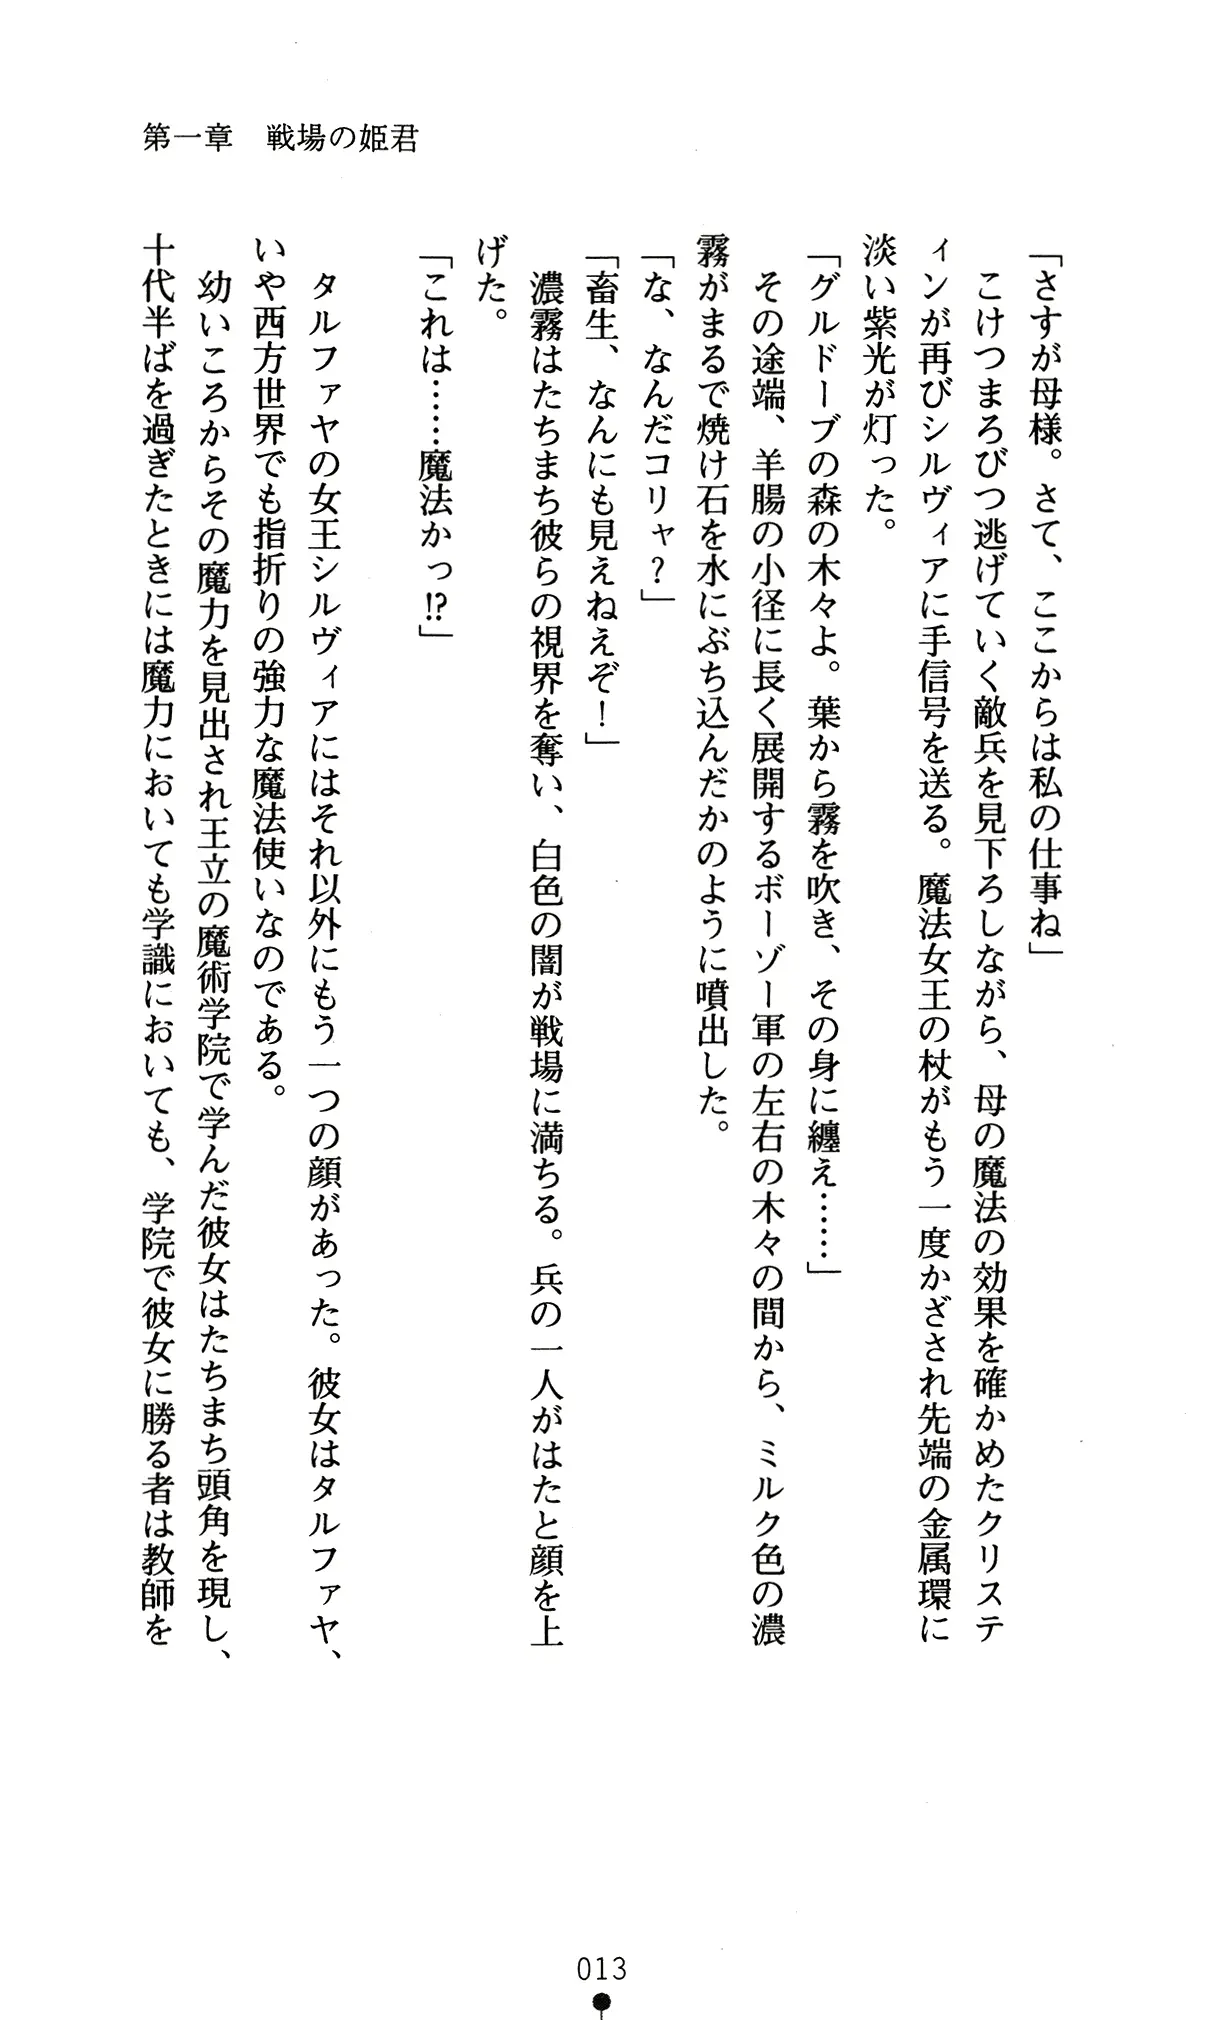 第一章　戦場の姫君
「さすが母様。さて、ここからは私の仕事ね」
　こけつまろびつ逃げていく敵兵を見下ろしながら、母の魔法の効果を確かめたクリステ
ィンが再びシルヴィアに手信号を送る。魔法女王の杖がもう一度かざされ先端の金属環に
淡い紫光が灯った。
「グルドーブの森の木々よ。葉から霧を吹き、その身に纏え……」
　その途端、羊腸の小径に長く展開するボーゾー軍の左右の木々の間から、ミルク色の濃
霧がまるで焼け石を水にぶち込んだかのように噴出した。
「な、なんだコリャ？」
「畜生、なんにも見えねえぞ！」
　濃霧はたちまち彼らの視界を奪い、白色の闇が戦場に満ちる。兵の一人がはたと顔を上
げた。
「これは……魔法かっ!?」
　タルファヤの女王シルヴィアにはそれ以外にもう一つの顔があった。彼女はタルファヤ、
いや西方世界でも指折りの強力な魔法使いなのである。
　幼いころからその魔力を見出され王立の魔術学院で学んだ彼女はたちまち頭角を現し、
十代半ばを過ぎたときには魔力においても学識においても、学院で彼女に勝る者は教師を
013